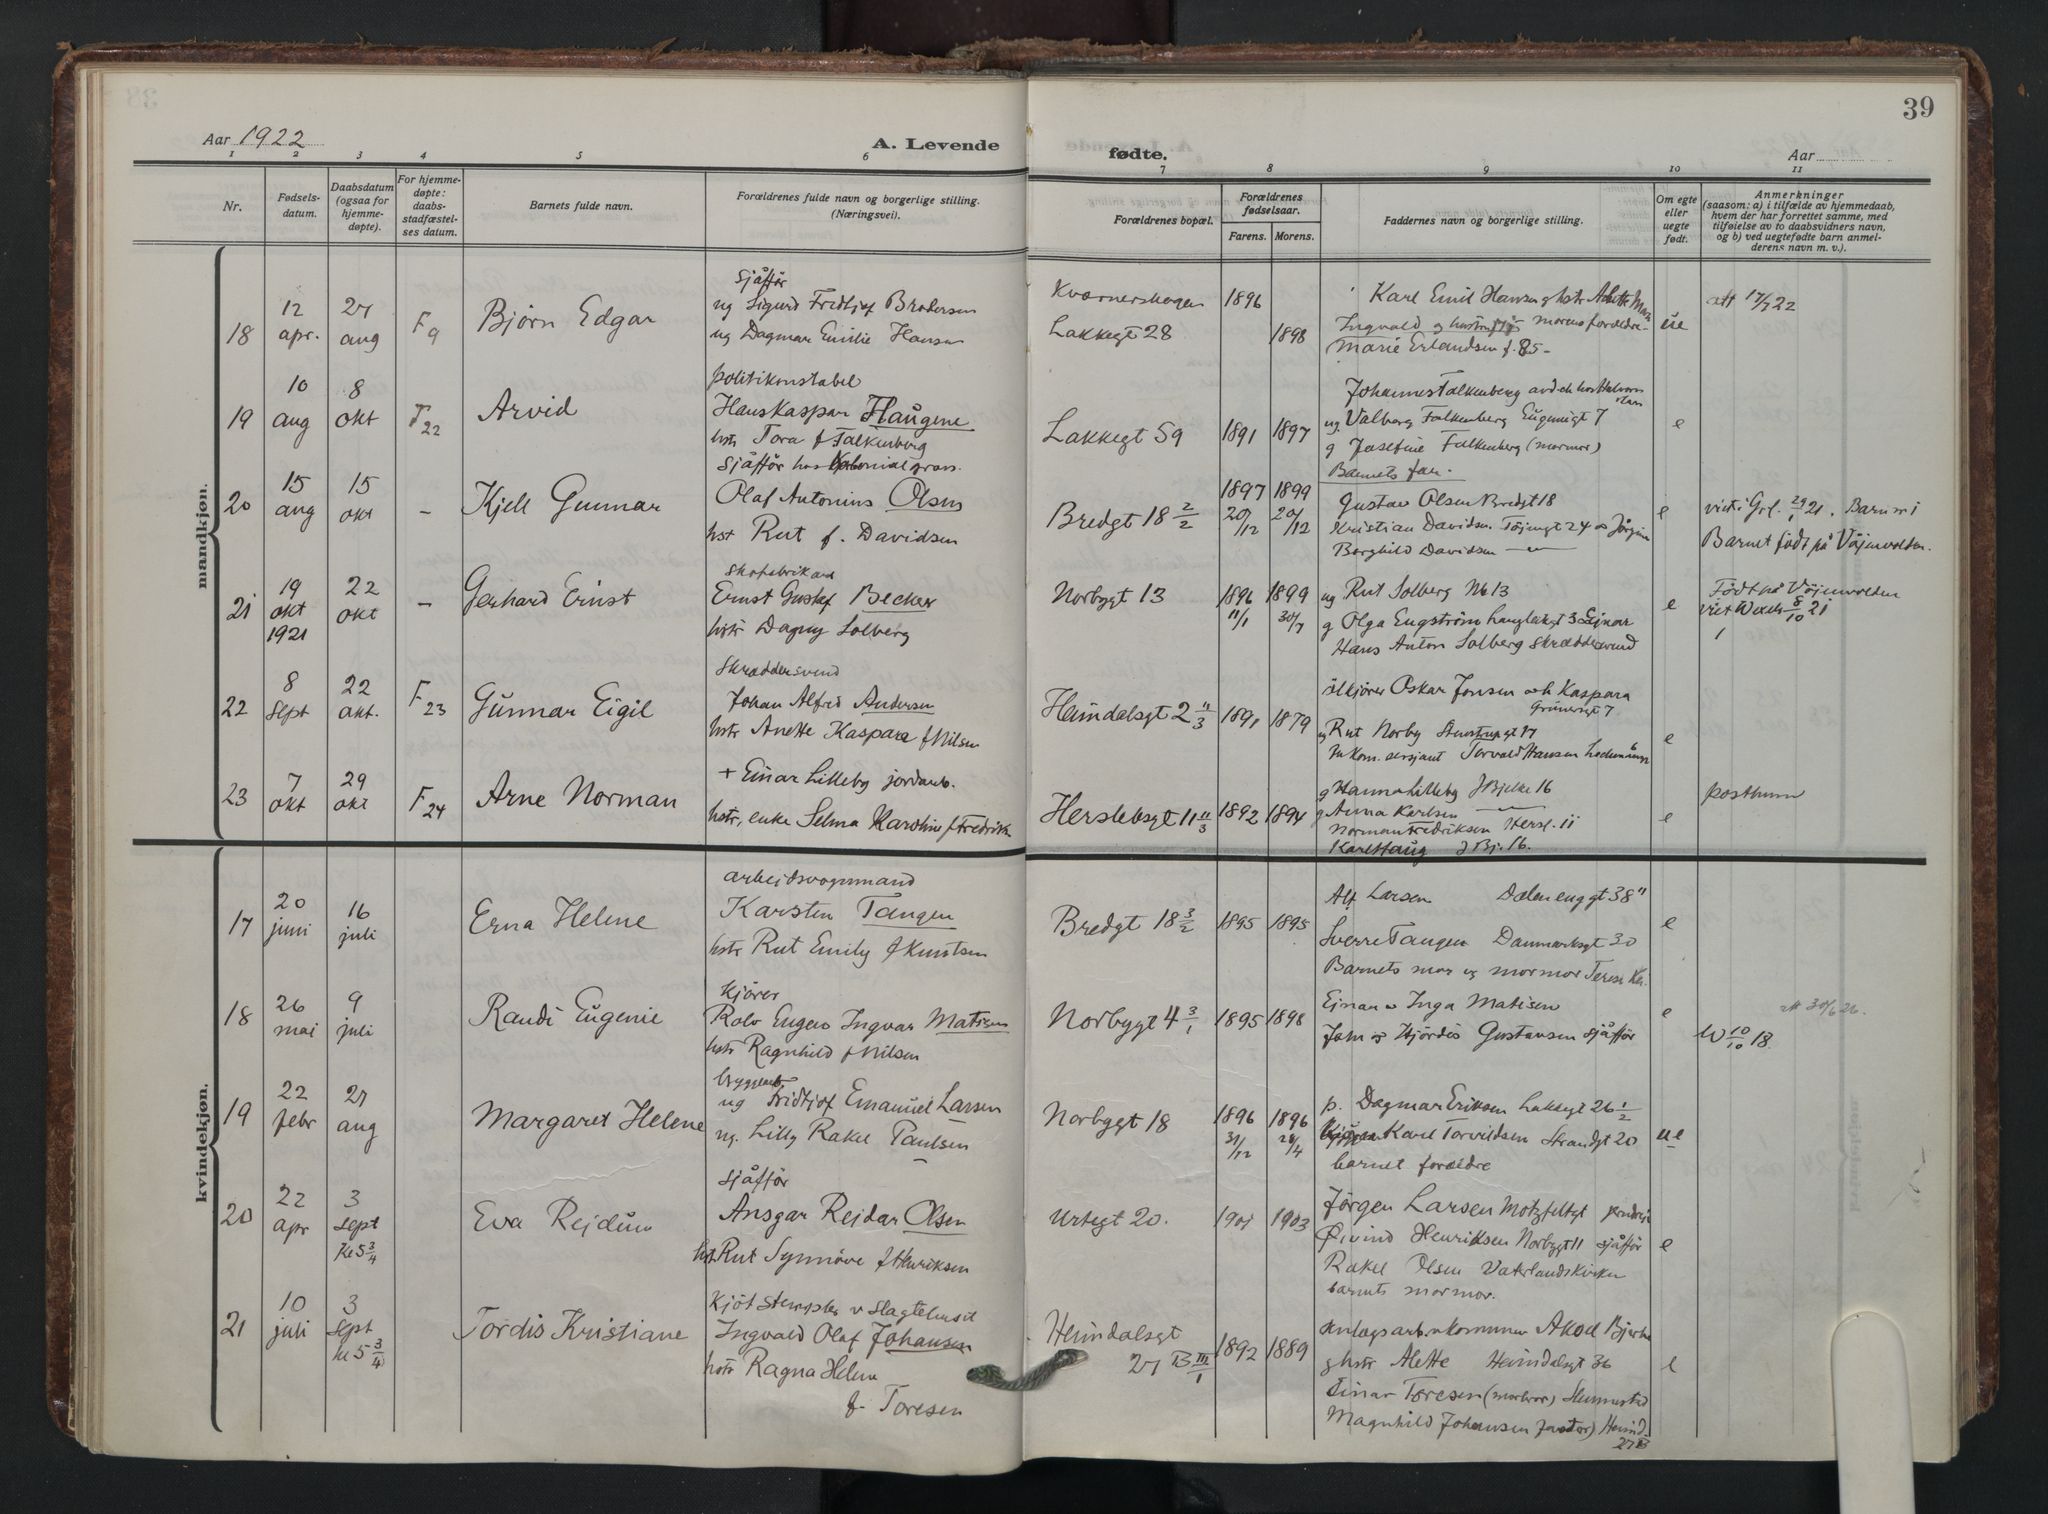 39
Aar 1922
A. Levende
fødte.
Aar
1 2 3 4 5 6 7 8 9 10 11
Nr.
Fødsels-
datum.
Daabsdatum
(ogsaa for
hjemme-
døpte).
For hjemme-
døpte:
daabs-
stadfæstel-
ses datum.
Barnets fulde navn.
Forældrenes fulde navn og borgerlige stilling.
(Næringsvei).
Forældrenes bopæl.
Forældrenes
fødselsaar.
Farens. Morens.
Faddernes navn og borgerlige stilling.
Om egte
eller
uegte
født.
Anmerkninger
(saasom: a) i tilfælde av hjemmedaab,
hvem der har forrettet samme, med
tilføielse av to daabsvidners navn,
og b) ved uegtefødte barn anmel-
derens navn m. v.).
mandkjøn.
18
12
apr.
27
aug
F 9
Bjørn Edgar
sjåffør
ug Sigurd Fridtjof Brodersen
ug Dagmar Emilie Hansen
Kværnerskogen
Lakkegt 28
1896
1898
Karl Emil Hansen
Ingvald morens forældre
Marie Erlandsen f. 85 -
ue
att 17/7 22
19
10
aug
8
okt
F 22
Arvid
politikonstabel
Hans Kaspar Haugene
hstr Tora f Falkenberg
Lakkegt 59
1891 1897
Johannes Falkenberg
ug Valborg Falkenberg Eugenigt 7
g Josefine Falkenberg (mormor)
Barnets far -
e
20
15
aug
15
okt
-
Kjell Gunnar
sjåffør hos
Olaf Antonius Olsen
hst Rut f. Davidsen
Bredgt 18 2/2
1897 1899
20/12 20/12
Gustav Olsen Bredgt 18
Kristian Davidsen Tøjengt 24
Borghild Davidsen -
e
viet i Grl. 29/1 21. Barn nr 1
Barnet født på Vøjenvolden.
21
19
okt
1921
22
okt
-
Gerhard Ernst
skofabrikant
Ernst Gustaf Becker
hstr Dagny Solberg
Norbygt 13
1896 1899
11/1 30/7
ug Rut Solberg Nb 13
g Olga Engström
Hans Anton Solberg skræddersvend
e
Født på Vøjenvolden
8/10 21
1
22
8
sept
22
okt.
F 23
Gunnar Eigil
skræddersvend
Johan Alfred Andersen
hstr Anette Kaspara f Nilsen
Heimdalsgt 2 11/3
1891 1879
ølkjører Oskar Jonsen och Kaspara
Grünersgt 7
g Rut Norby
sersjant Torvald Hansen
e
23
7
okt
29
okt
F 24
Arne Norman
+ Einar Lilleby jordarb.
hstr, enke Selma Karoline f Fredriks
Herslebsgt 11 11/3
1892 1894
g Hanna Lilleby J Bjelke 16
g Anna Karlsen -
Norman Fredriksen Hersl. 11
Karl Haug J Bj. 16.
e
posthum
kvindekjøn.
17
20
juni
16
juli
Erna Helene
arbeidsvognmand
Karsten Tangen
hstr Rut Emily f Knutsen
Bredgt 18 3/2
1895 1895
Alf Larsen Dælenenggt 38"
Sverre Tangen Danmarksgt 30
Barnets mor og mormor Terese Kn.
e
18
26
mai
9
juli
Randi Eugenie
kjører
Rolv Eugen Ingvar Matisen
hstr Ragnhild f Nilsen
Norbygt 4 3/1
1895 1898
Ejnar o Inga Matisen
John og Hjørdis Gustavsen sjåffør
e
att 30/6 26.
W 10/10 18.
19
22
febr
27
aug
Margaret Helene
ug Fridtjof Emanuel Larsen
ug. Lilly Rakel Paulsen
Norbygt 18
1896 1896
31/12
p. Dagmar Eriksen Lakkegt 26 1/2
Karl Torvildsen Strandgt 20
barnet forældre
ue
20
22
apr
3
sept
kl 5 3/4
Eva Rejdun
sjåffør
Ansgar Rejdar Olsen
hst. Rut Synnöve f Henriksen
Urtegt 20.
1901 1903
Jørgen Larsen Motzfeltgt
Øivind Henriksen Norbygt 11 sjåffør
Rakel Olsen Vaterlandskirken
barnets mormor.
e
21
10
juli
3
sept
kl 5 3/4
Tordis Kristiane
Kjøt stempler v slagtehuset
Ingvald Olaf Johansen
hstr Ragna Helene
f. Toresen
Heimdalsgt
27 B III/1
1892 1889
anlægsarb. v kommunen
g hstr Alette Heimdalsgt 36
Einar Toresen (morbror)
Magnhild Johansen Heimd.
27 B
e